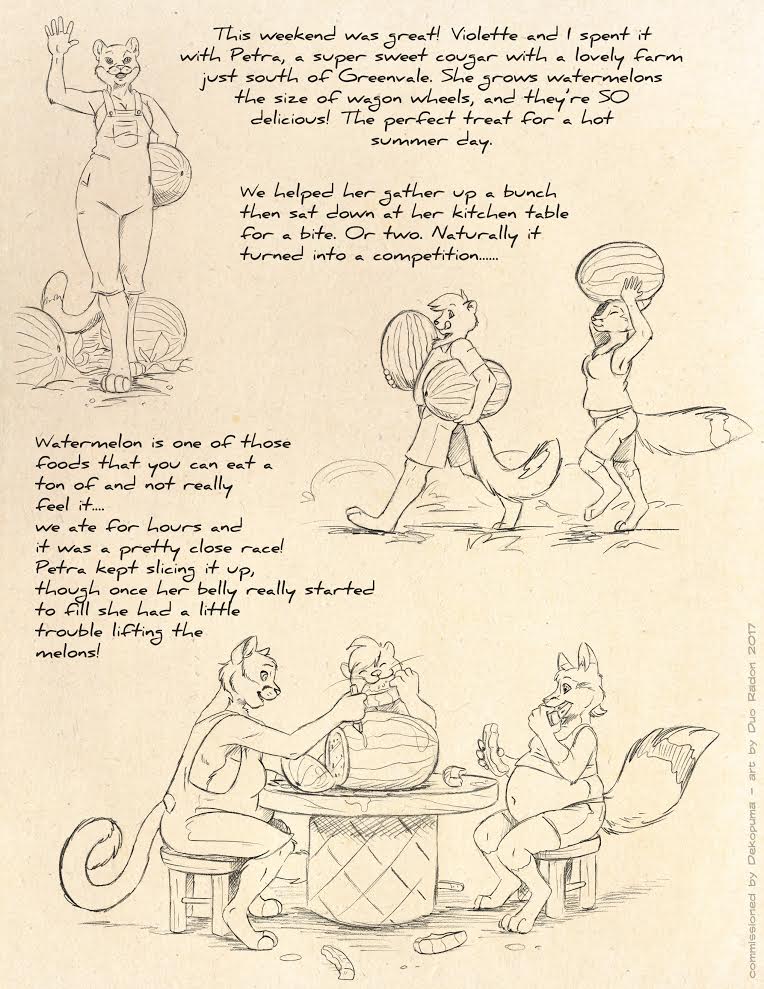 This weekend was great! Violette and I spent it
with Petra, a super sweet cougar with a lovely farm
just south of Greenvale. She grows watermelons
the size of wagon wheels, and they're SO
delicious! The perfect treat for a hot
summer day.
We helped her gather up a bunch
then sat down at her kitchen table
for a bite. Or two. Naturally it
turned into a competition......
Watermelon is one of those
foods that you can eat a
ton of and not really
feel it....
we ate for hours and
it was a pretty close race!
Petra kept slicing it up,
though once her belly really started
to fill she had a little
trouble lifting the
melons!
commissioned by Dekopuma - art by Duo Radon 2017